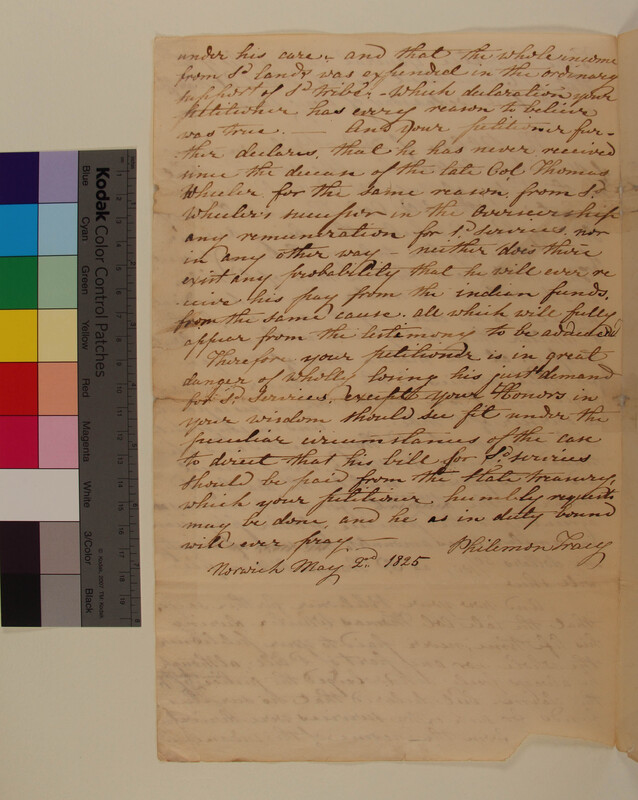 under his care,- and that the whole income
from sd lands was expended in the ordinary
support of sd tribe,- which declaration your
petitioner has every reason to believe
was true. — And your petitioner fur-
ther declares, that he has never received
since the decease of the late Col Thomas
Wheeler for the same reason, from sd
Wheeler's successor in the overseership
any remuneration for sd services, nor
in any other way - neither does there
exist any probability that he will ever re
ceive his pay from the indian funds,
from the same cause. all which will fully
appear from the testimony to be adduced
Therefor your petitioner is in great
danger of wholly losing his just demand
for sd services, except your Honors in
your wisdom should see fit under the
peculiar circumstances of the case
to direct that his bill for sd services
should be paid from the State treasury,
which your petitioner humbly requests
may be done, and he as in duty bound
will ever pray — Philemon Tracy
Norwich May 2nd 1825
Kodak Color Control Patches
Blue
Cyan
Green
Yellow
Red
Magenta
White
3/Color
Black